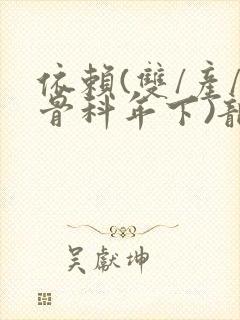 依賴(雙/產/
骨科年下)
吳獻坤